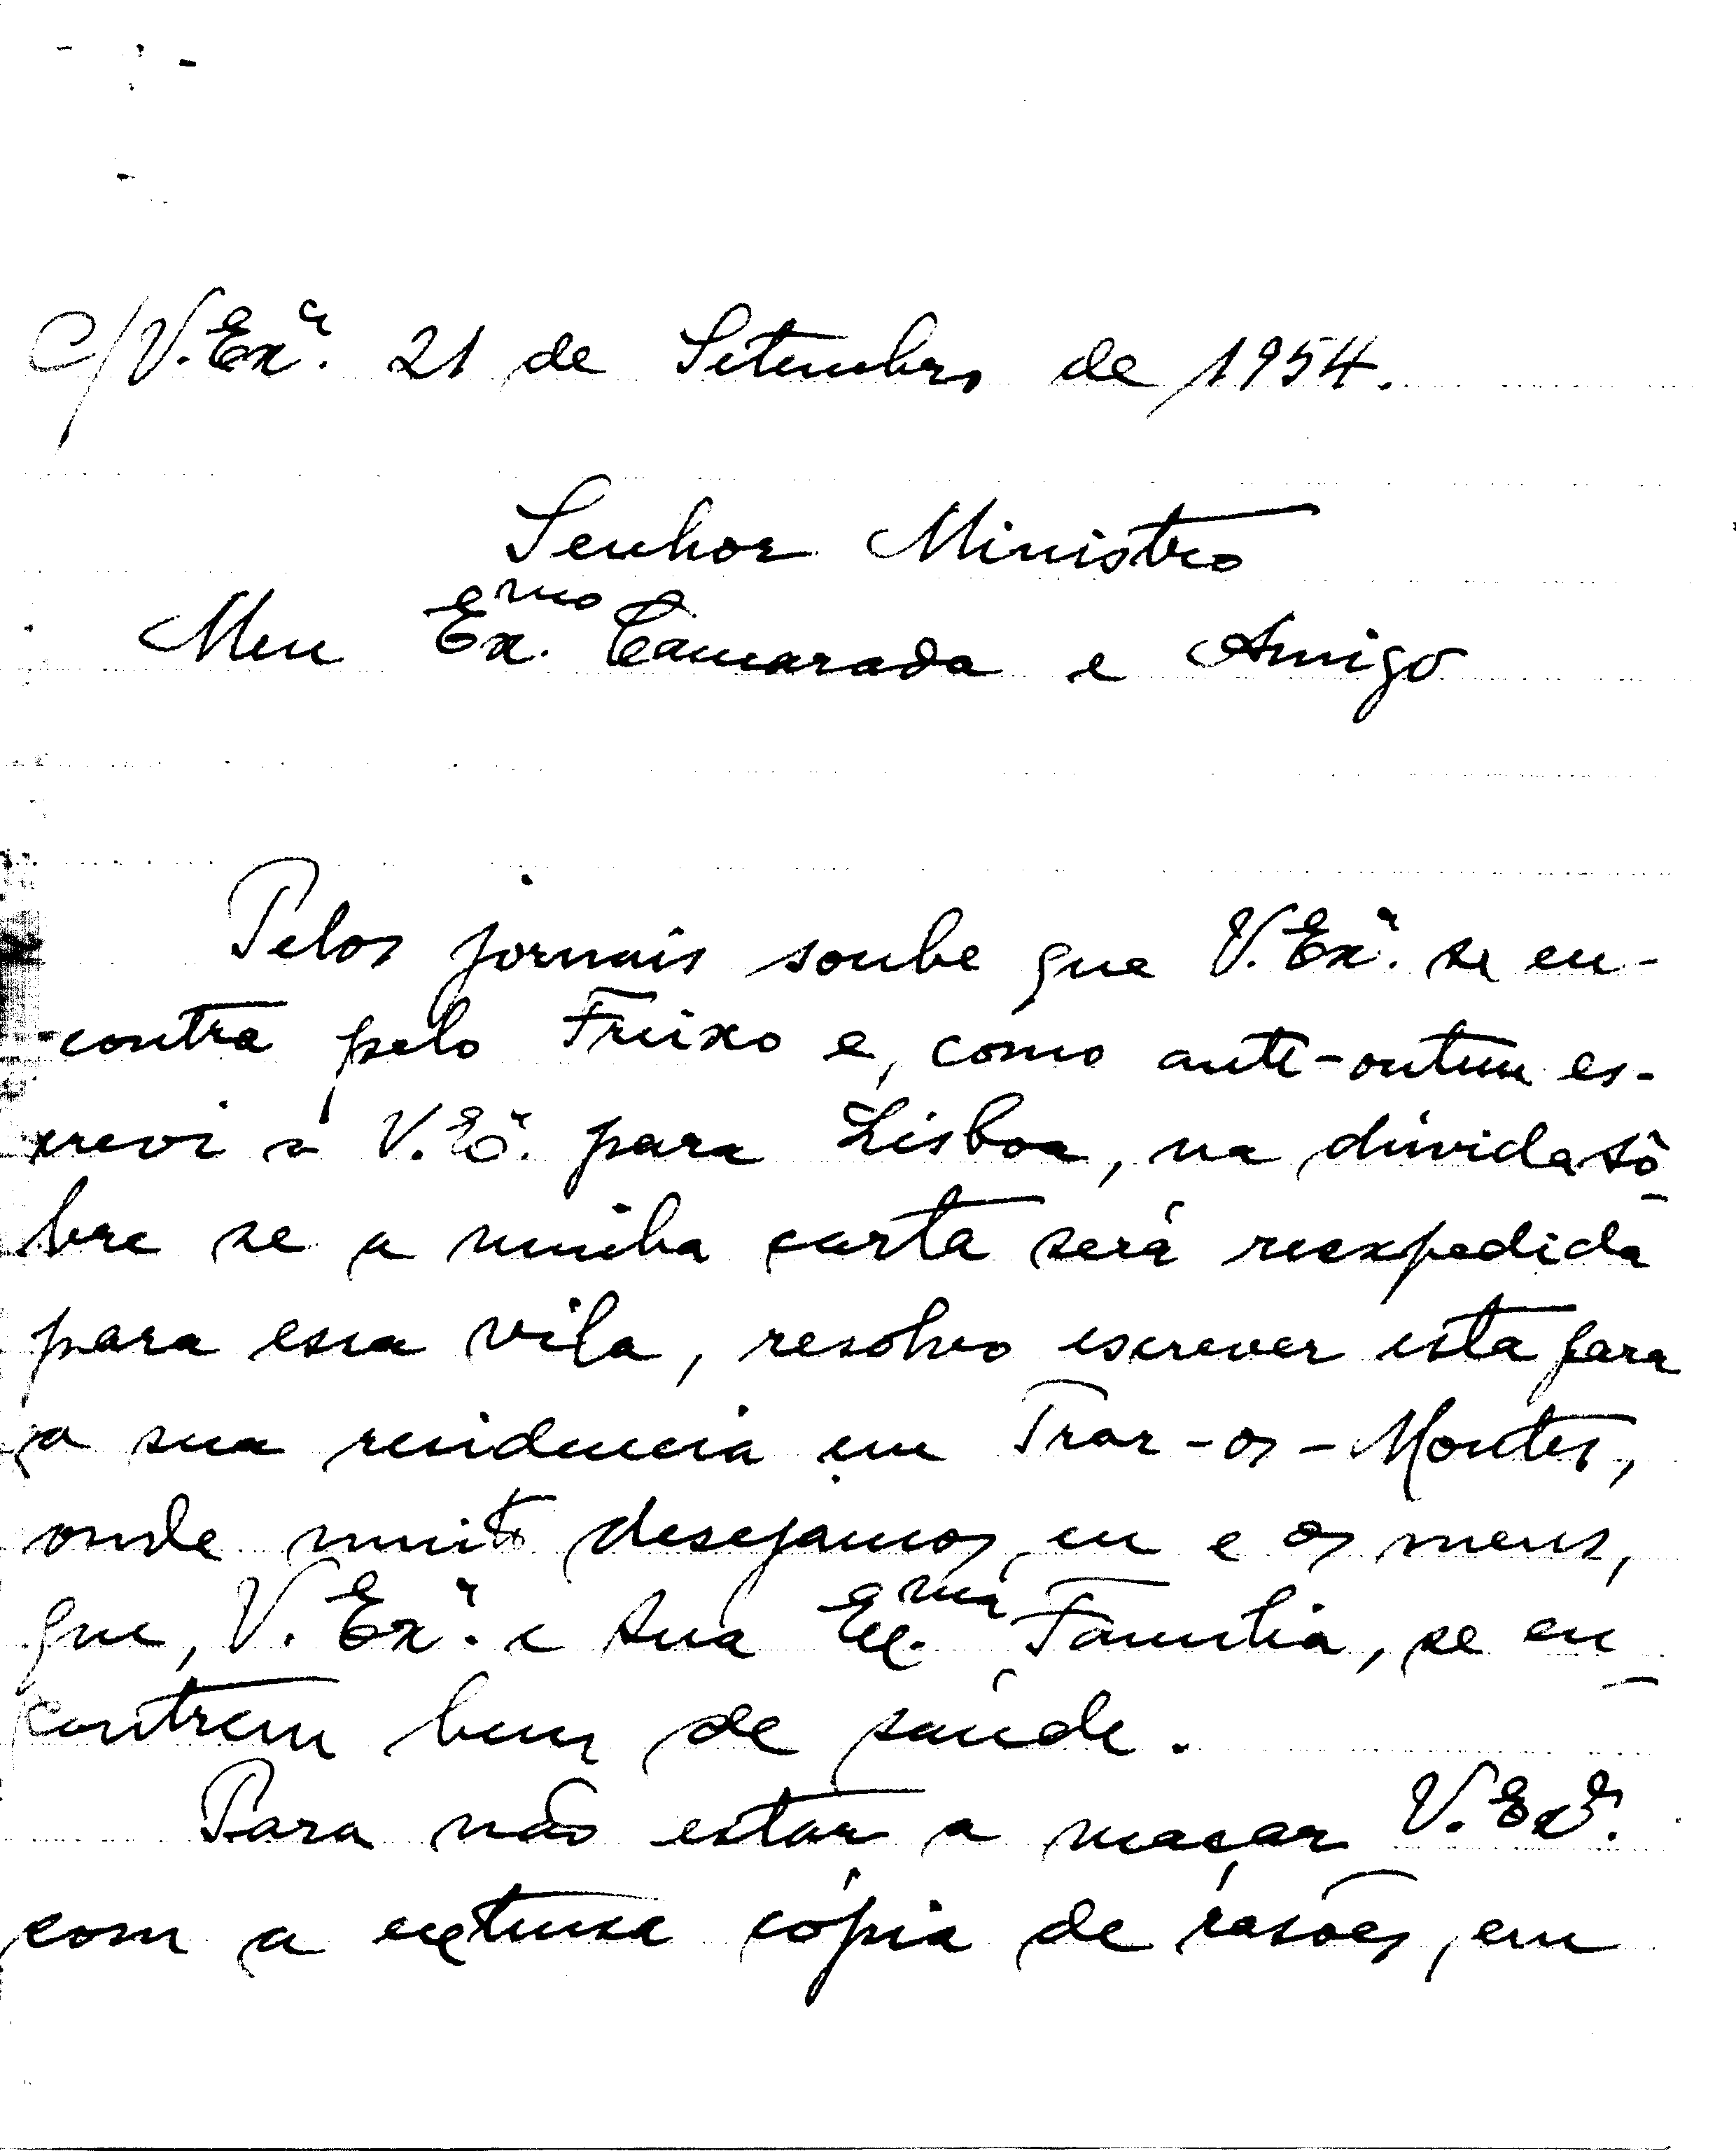 C/V. Exª. 21 de Setembro de 1954.
Senhor Ministro
Meu Exmo. Camarada e Amigo
Pelos jornais soube que V. Exª. se en-
contra pelo Freixo e, como ante-ontem es-
crevi a V. Eª. para Lisboa, na dúvida sô
bre se a minha carta será reexpedida
para essa vila, resolvo escrever esta para
a sua residencia em Traz-os-Montes,
onde muito desejamos, eu e os meus,
que, V. Exª. e sua Exma. Familia, se en-
contrem bem de saúde.
Para não estar a maçar V. Exª.
com a extensa cópia de rasões, em